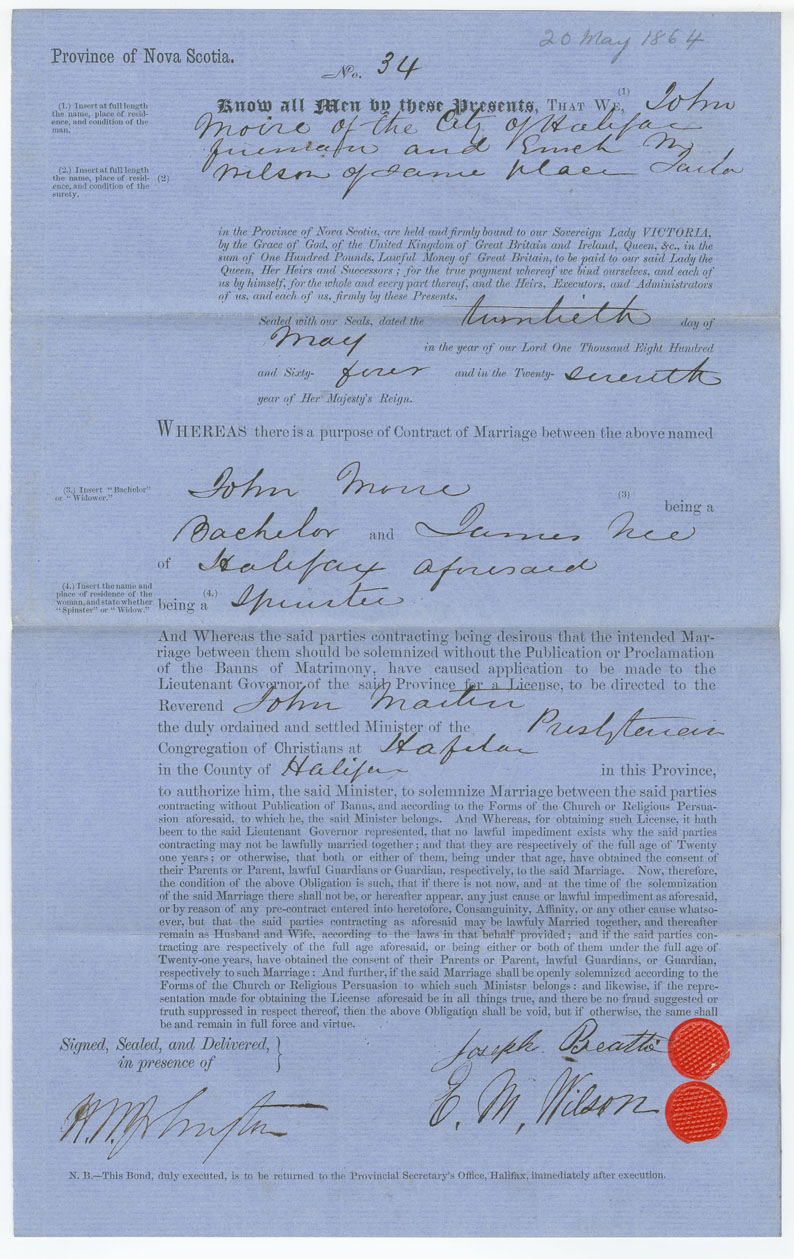 20 May 1864
Province of Nova Scotia.
No. 34
(1.) Insert at full length
the name, place of resid-
ence, and condition of the
man.
(1)
Know all Men by these Presents, THAT WE, John
Moire of the City of Halifax
and Enoch M.
(2.) Insert at full length
the name, place of resid-
ence, and condition of the
surety.
(2)
Wilson of same place Tailor
in the Province of Nova Scotia, are held and firmly bound to our Sovereign Lady VICTORIA,
by the Grace of God, of the United Kingdom of Great Britain and Ireland, Queen, &c., in the
sum of One Hundred Pounds, Lawful Money of Great Britain, to be paid to our said Lady the
Queen, Her Heirs and Successors; for the true payment whereof we bind ourselves, and each of
us by himself, for the whole and every part thereof, and the Heirs, Executors, and Administrators
of us, and each of us, firmly by these Presents.
Sealed with our Seals, dated the twentieth day of
May in the year of our Lord One Thousand Eight Hundred
and Sixty- four and in the Twenty- seventh
year of Her Majesty's Reign.
WHEREAS there is a purpose of Contract of Marriage between the above named
(3.) Insert "Bachelor"
or "Widower."
John Moire (3) being a
Bachelor and James Nee
of Halifax aforesaid
(4.) Insert the name and
place of residence of the
woman, and state whether
"Spinster" or "Widow."
being a (4.) Spinster
And Whereas the said parties contracting being desirous that the intended Mar-
riage between them should be solemnized without the Publication or Proclamation
of the Banns of Matrimony, have caused application to be made to the
Lieutenant Governor of the said Province for a License, to be directed to the
Reverend John Martin
the duly ordained and settled Minister of the Presbyterian
Congregation of Christians at Halifax
in the County of Halifax in this Province,
to authorize him, the said Minister, to solemnize Marriage between the said parties
contracting without Publication of Banns, and according to the Forms of the Church or Religious Persua-
sion aforesaid, to which he, the said Minister belongs. And Whereas, for obtaining such License, it hath
been to the said Lieutenant Governor represented, that no lawful impediment exists why the said parties
contracting may not be lawfully married together; and that they are respectively of the full age of Twenty
one years; or otherwise, that both or either of them, being under that age, have obtained the consent of
their Parents or Parent, lawful Guardians or Guardian, respectively, to the said Marriage. Now, therefore,
the condition of the above Obligation is such, that if there is not now, and at the time of the solemnization
of the said Marriage there shall not be, or hereafter appear, any just cause or lawful impediment as aforesaid,
or by reason of any pre-contract entered into heretofore, Consanguinity, Affinity, or any other cause whatso-
ever, but that the said parties contracting as aforesaid may be lawfully Married together, and thereafter
remain as Husband and Wife, according to the laws in that behalf provided; and if the said parties con-
tracting are respectively of the full age aforesaid, or being either or both of them under the full age of
Twenty-one years, have obtained the consent of their Parents or Parent, lawful Guardians, or Guardian,
respectively to such Marriage: And further, if the said Marriage shall be openly solemnized according to the
Forms of the Church or Religious Persuasion to which such Ministsr belongs: and likewise, if the repre-
sentation made for obtaining the License aforesaid be in all things true, and there be no fraud suggested or
truth suppressed in respect thereof, then the above Obligation shall be void, but if otherwise, the same shall
be and remain in full force and virtue.
Signed, Sealed, and Delivered,
in presence of
Joseph Beattie
E. M. Wilson
N. B.—This Bond, duly executed, is to be returned to the Provincial Secretary's Office, Halifax, immediately after execution.